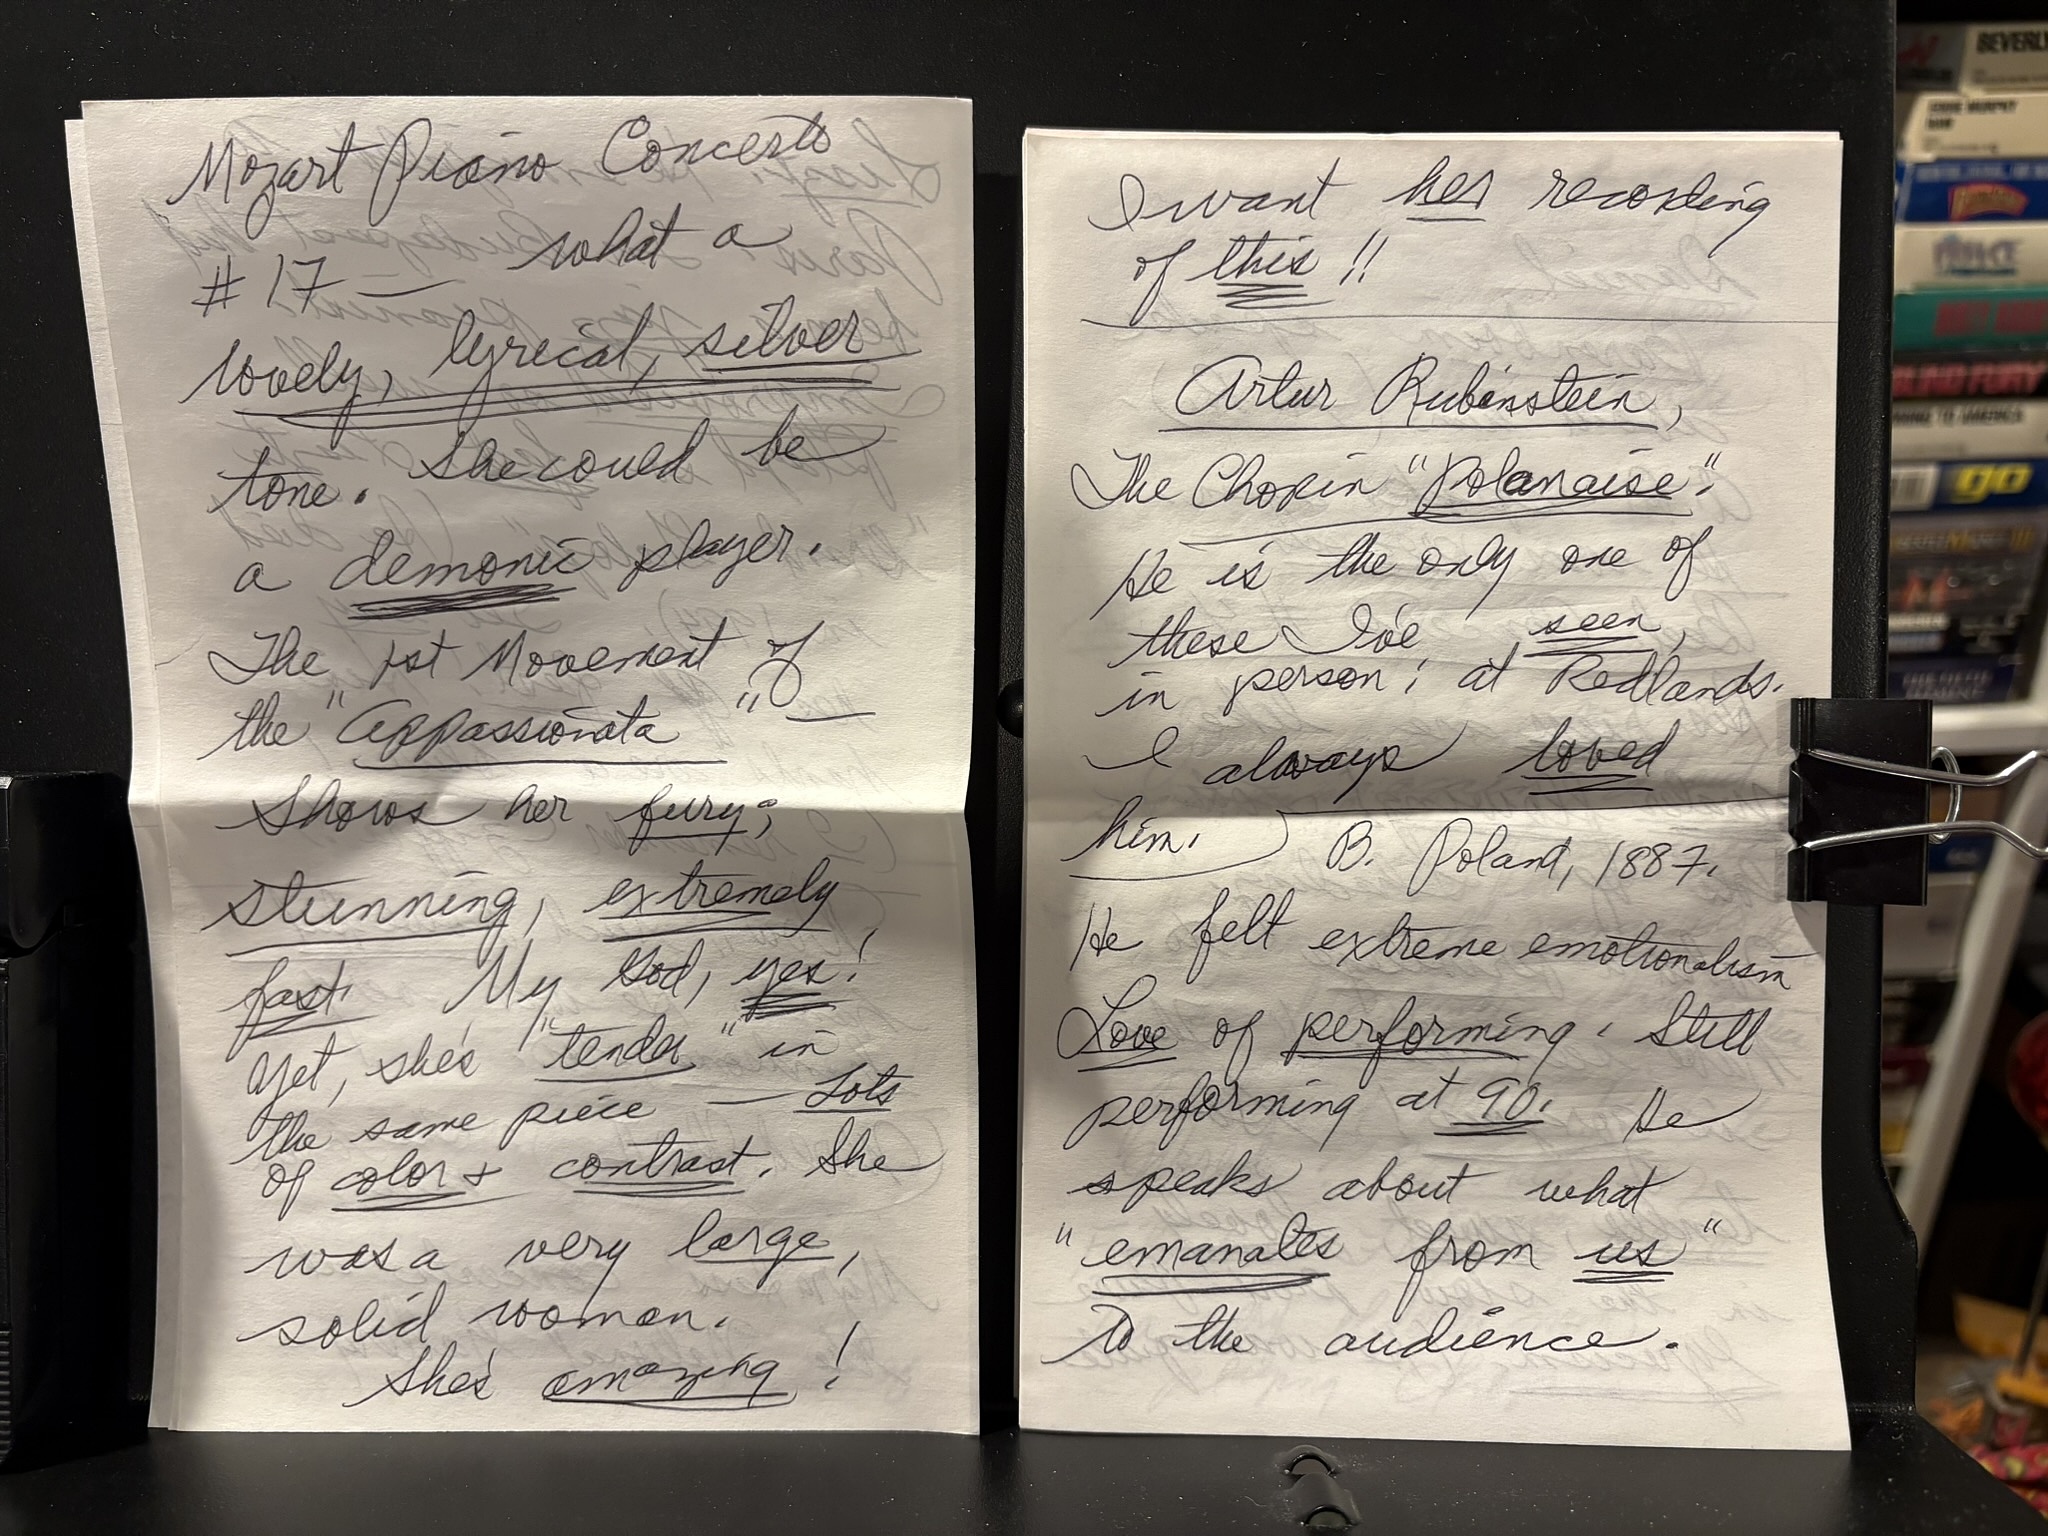 Mozart Piano Concerto
#17 — what a
lovely, lyrical, silver
tone. She could be
a demonic player.
The 1st Movement of
the "Appassionata" —
shows her fury;
stunning, extremely
fast. My God, yes!
Yet, she's "tender" in
the same piece — Lots
of color & contrast. She
was a very large,
solid woman.
She's amazing!
I want her recording
of this!!
Artur Rubinstein,
The Chopin "Polanaise".
He is the only one of
these I've seen,
in person; at Redlands.
I always loved
him. B. Poland, 1887.
He felt extreme emotionalism
Love of performing. Still
performing at 90. He
speaks about what
"emanates from us"
to the audience.
BEVERLY
EDDIE MURPHY
RAW
PRINCE
BLIND FURY
COMING TO AMERICA
go